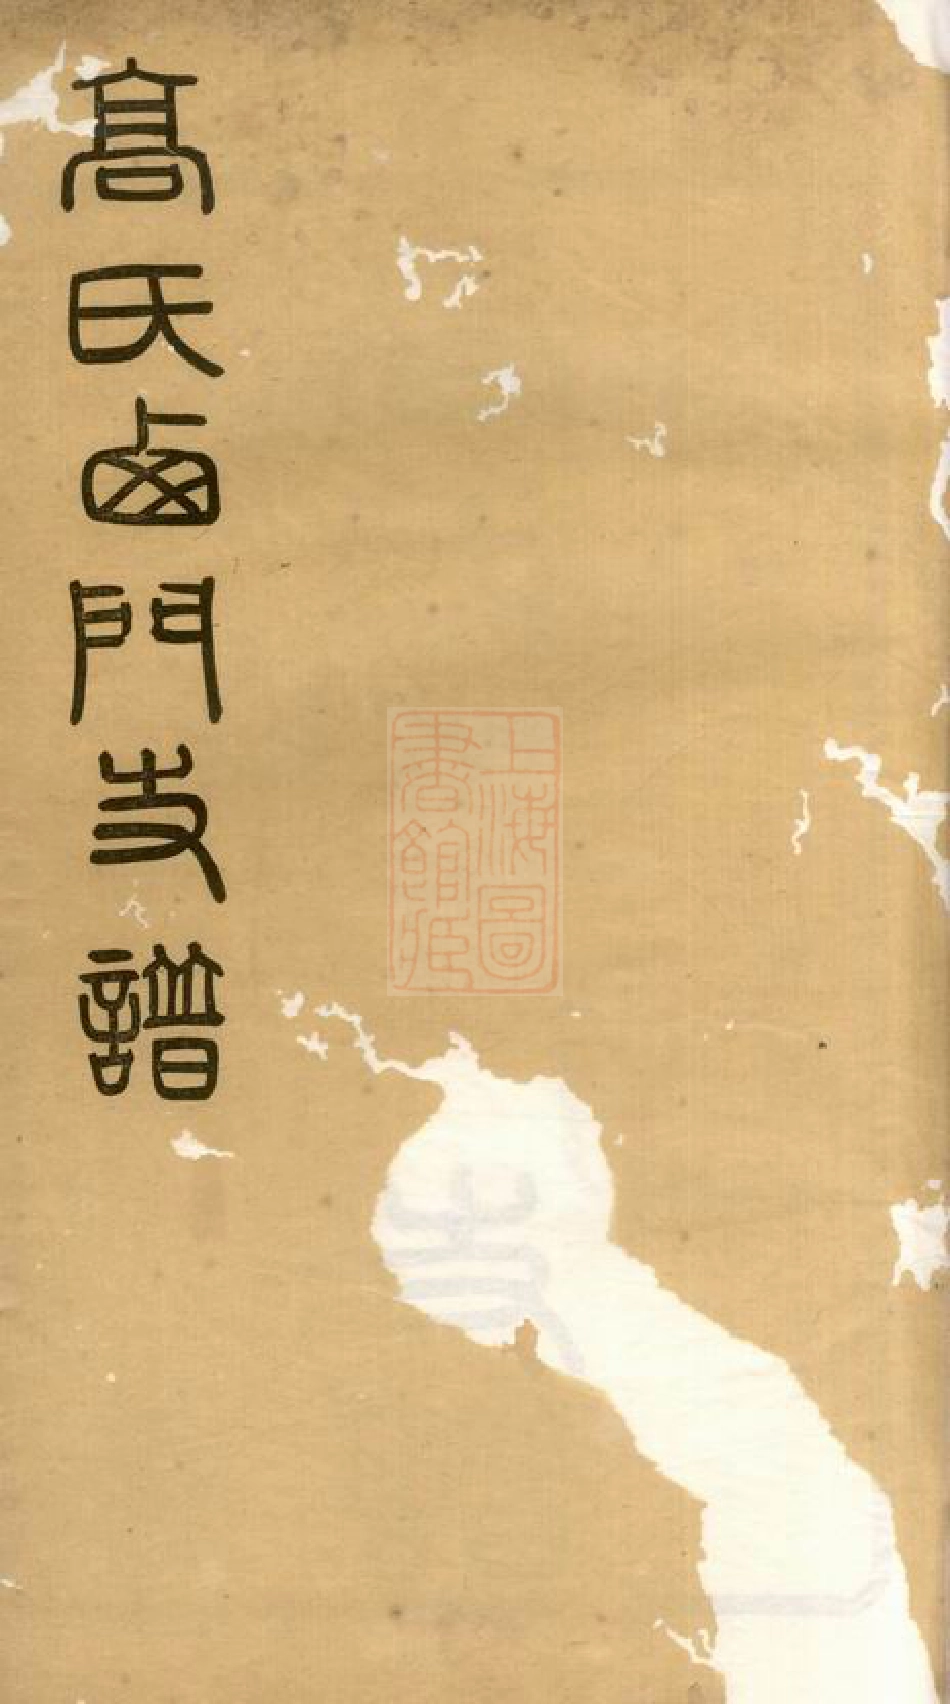 高氏西門支譜
上海圖
書館藏